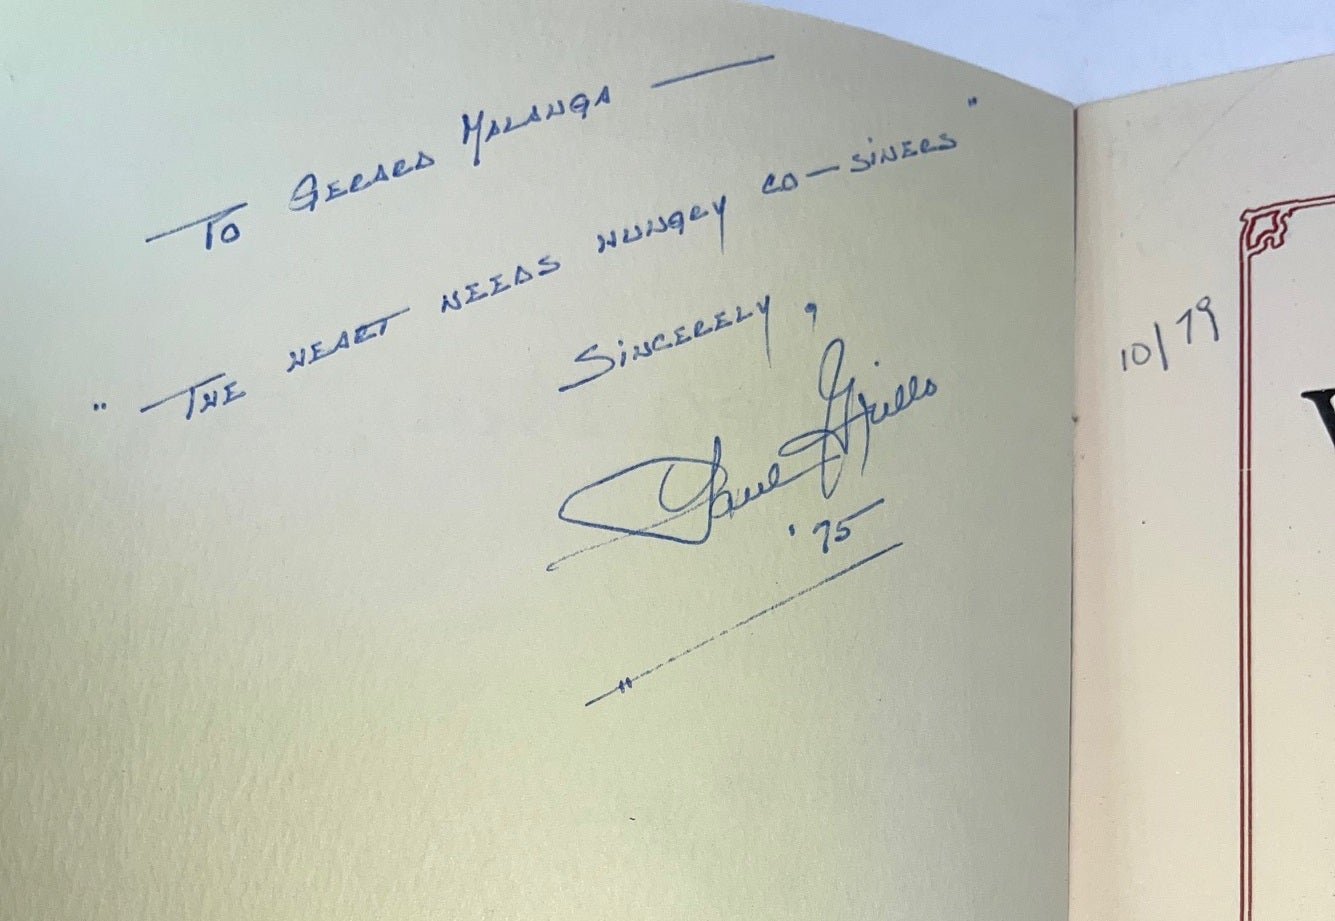 — TO GERARD MALANGA —
" THE HEART NEEDS HUNGRY CO-SINERS "
SINCERELY,
Paul Grillo
'75
10/79